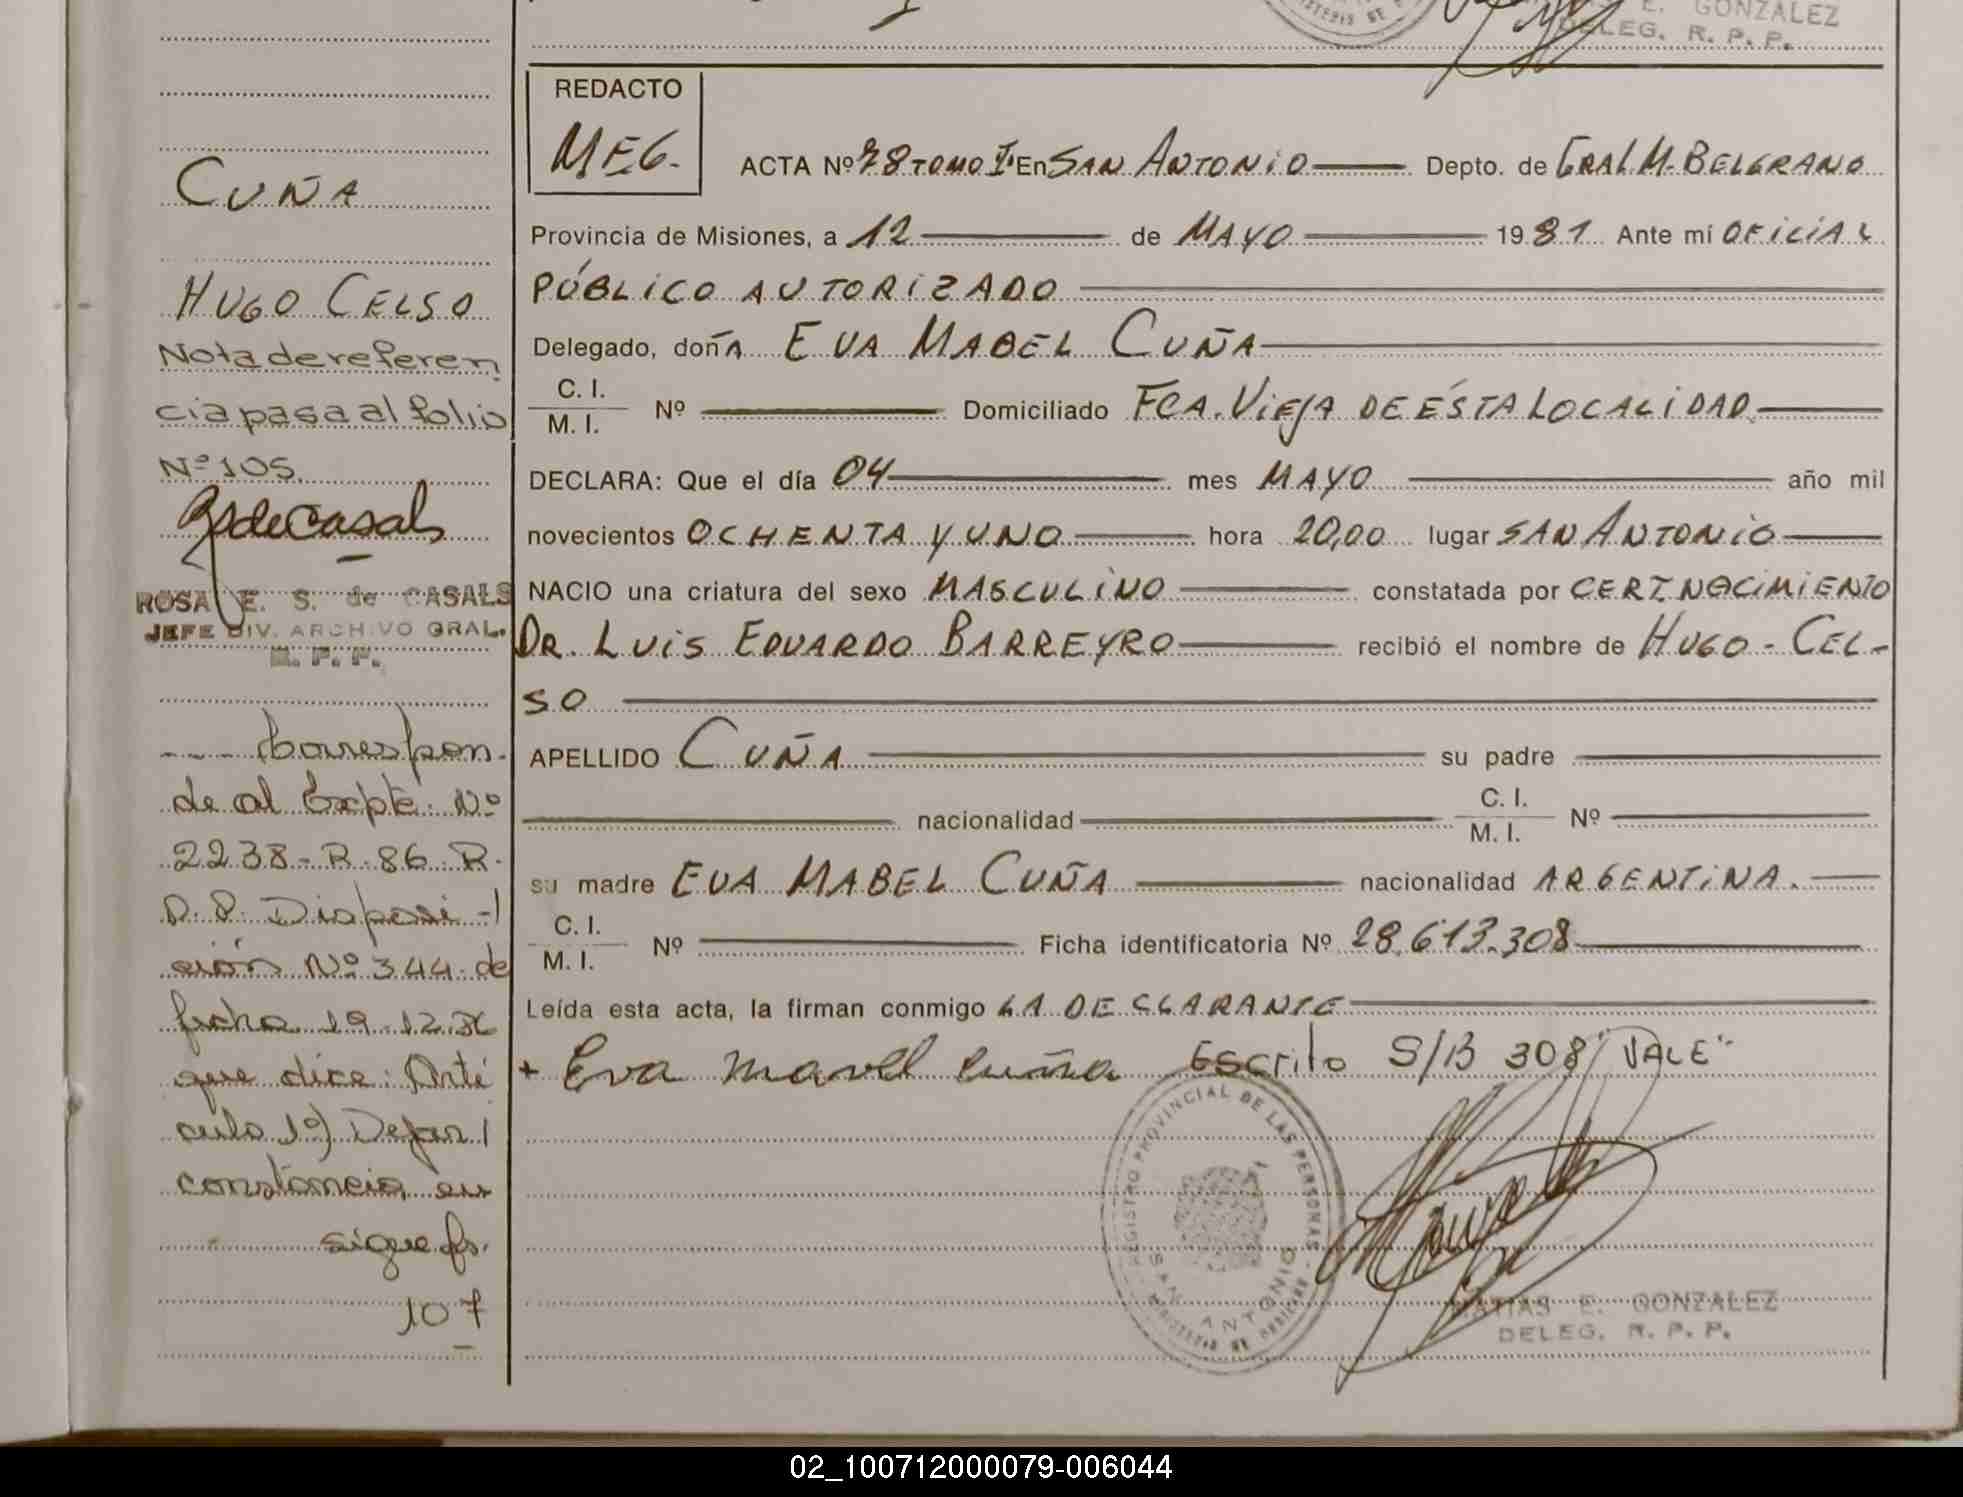 E. GONZALEZ
DELEG. R. P. P.
CUÑA
HUGO CELSO
Nota de referen
cia pasa al folio
Nº 105.
RSdeCasals
ROSA E. S. de CASALS
JEFE DIV. ARCHIVO GRAL.
R. P. P.
---- Corespon-
de al Expte. Nº
2238-R-86-R.
P.P. Disposi-
ción Nº 344 de
fecha 19-12-86
que dice: Artí
culo 1º) Dejar
constancia, en
sigue fs.
107
REDACTO
M.E.G.
ACTA Nº 78 TOMO I En SAN ANTONIO Depto. de GRAL M. BELGRANO
Provincia de Misiones, a 12 de MAYO 1981 Ante mí OFICIAL
PÚBLICO AUTORIZADO
Delegado, doña EVA MABEL CUÑA
C. I.
M. I. Nº Domiciliado FCA. VIEJA DE ÉSTA LOCALIDAD
DECLARA: Que el día 04 mes MAYO año mil
novecientos OCHENTA Y UNO hora 20,00 lugar SAN ANTONIO
NACIO una criatura del sexo MASCULINO constatada por CERT. NACIMIENTO
DR. LUIS EDUARDO BARREYRO recibió el nombre de HUGO - CEL-
SO
APELLIDO CUÑA su padre
nacionalidad C. I.
M. I. Nº
su madre EVA MABEL CUÑA nacionalidad ARGENTINA.
C. I.
M. I. Nº Ficha identificatoria Nº 28.613.308
Leída esta acta, la firman conmigo LA DECLARANTE
+ Eva Mavel Cuña Escrito S/B 308 "VALE"
REGISTRO PROVINCIAL DE LAS PERSONAS
SAN ANTONIO
MATIAS E. GONZALEZ
DELEG. R. P. P.
02_100712000079-006044